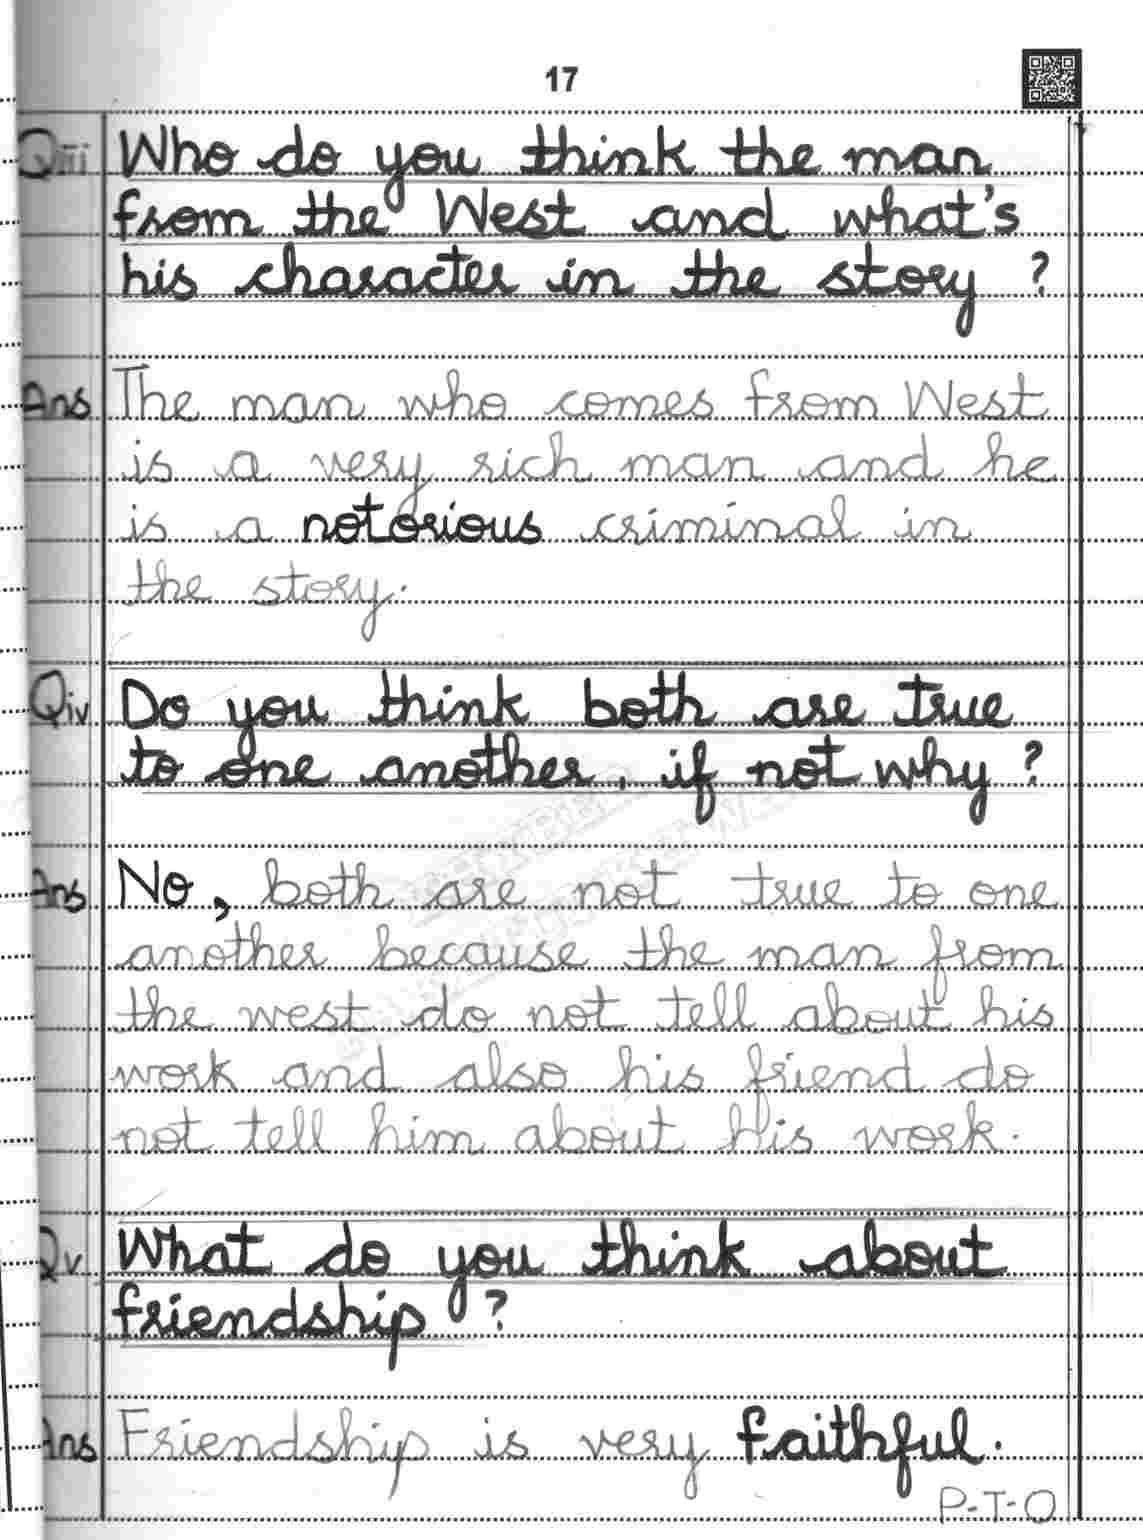 17
Qiii Who do you think the man
from the West and what's
his character in the story ?
Ans The man who comes from West
is a very rich man and he
is a notorious criminal in
the story.
Qiv Do you think both are true
to one another, if not why ?
Ans No, both are not true to one
another because the man from
the west do not tell about his
work and also his friend do
not tell him about his work.
Qv What do you think about
friendship ?
Ans Friendship is very faithful.
P-T-O